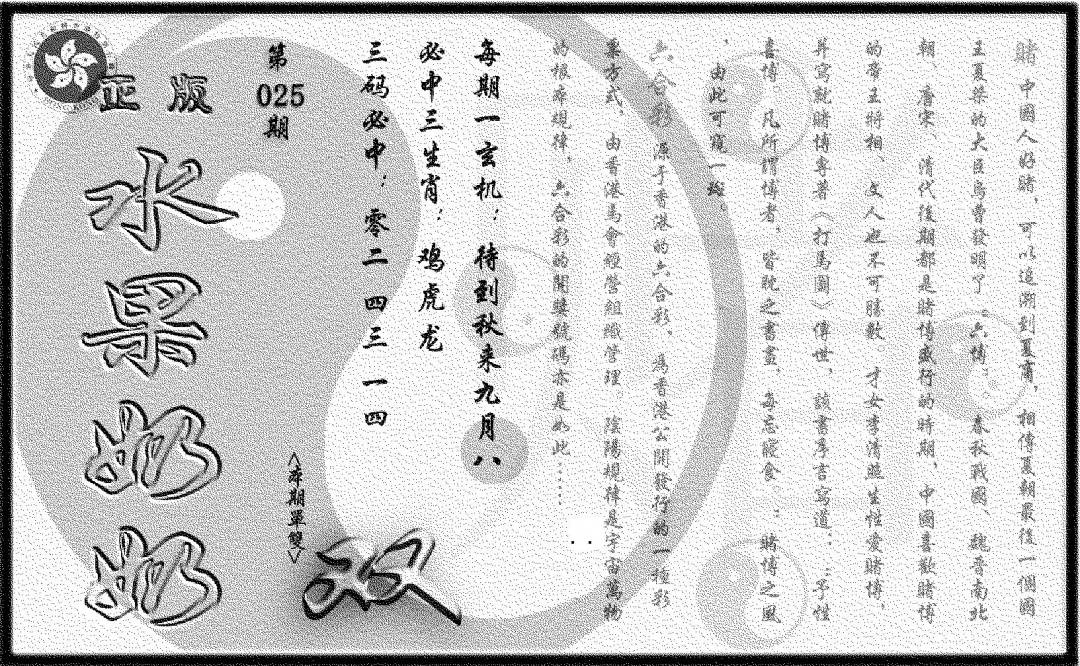 賭 中國人好賭，可以追溯到夏商，相傳夏朝最後一個國
王夏桀的大臣烏曹發明了：六博； 春秋戰國、魏晉南北
朝、唐宋、清代後期都是賭博盛行的時期，中國喜歡賭博
的帝王將相 文人也不可勝數 才女李清照生性愛賭博，
并寫就賭博專著《打馬圖》傳世，該書序言寫道：：予性
喜博。凡所謂博者，皆耽之晝，每忘寢食 ：賭博之風
，由此可窺一斑。
六合彩 源于香港的六合彩，為香港公開發行的一種彩
票方式，由香港馬會經營組織管理。陰陽規律是宇宙萬物
的根本規律，六合彩的開獎號碼亦是如此……
每期一玄机：待到秋来九月八
必中三生肖：鸡虎龙
三码必中：零二 四三 一四
第
025
期
<本期單雙>
双
正版
水果奶奶